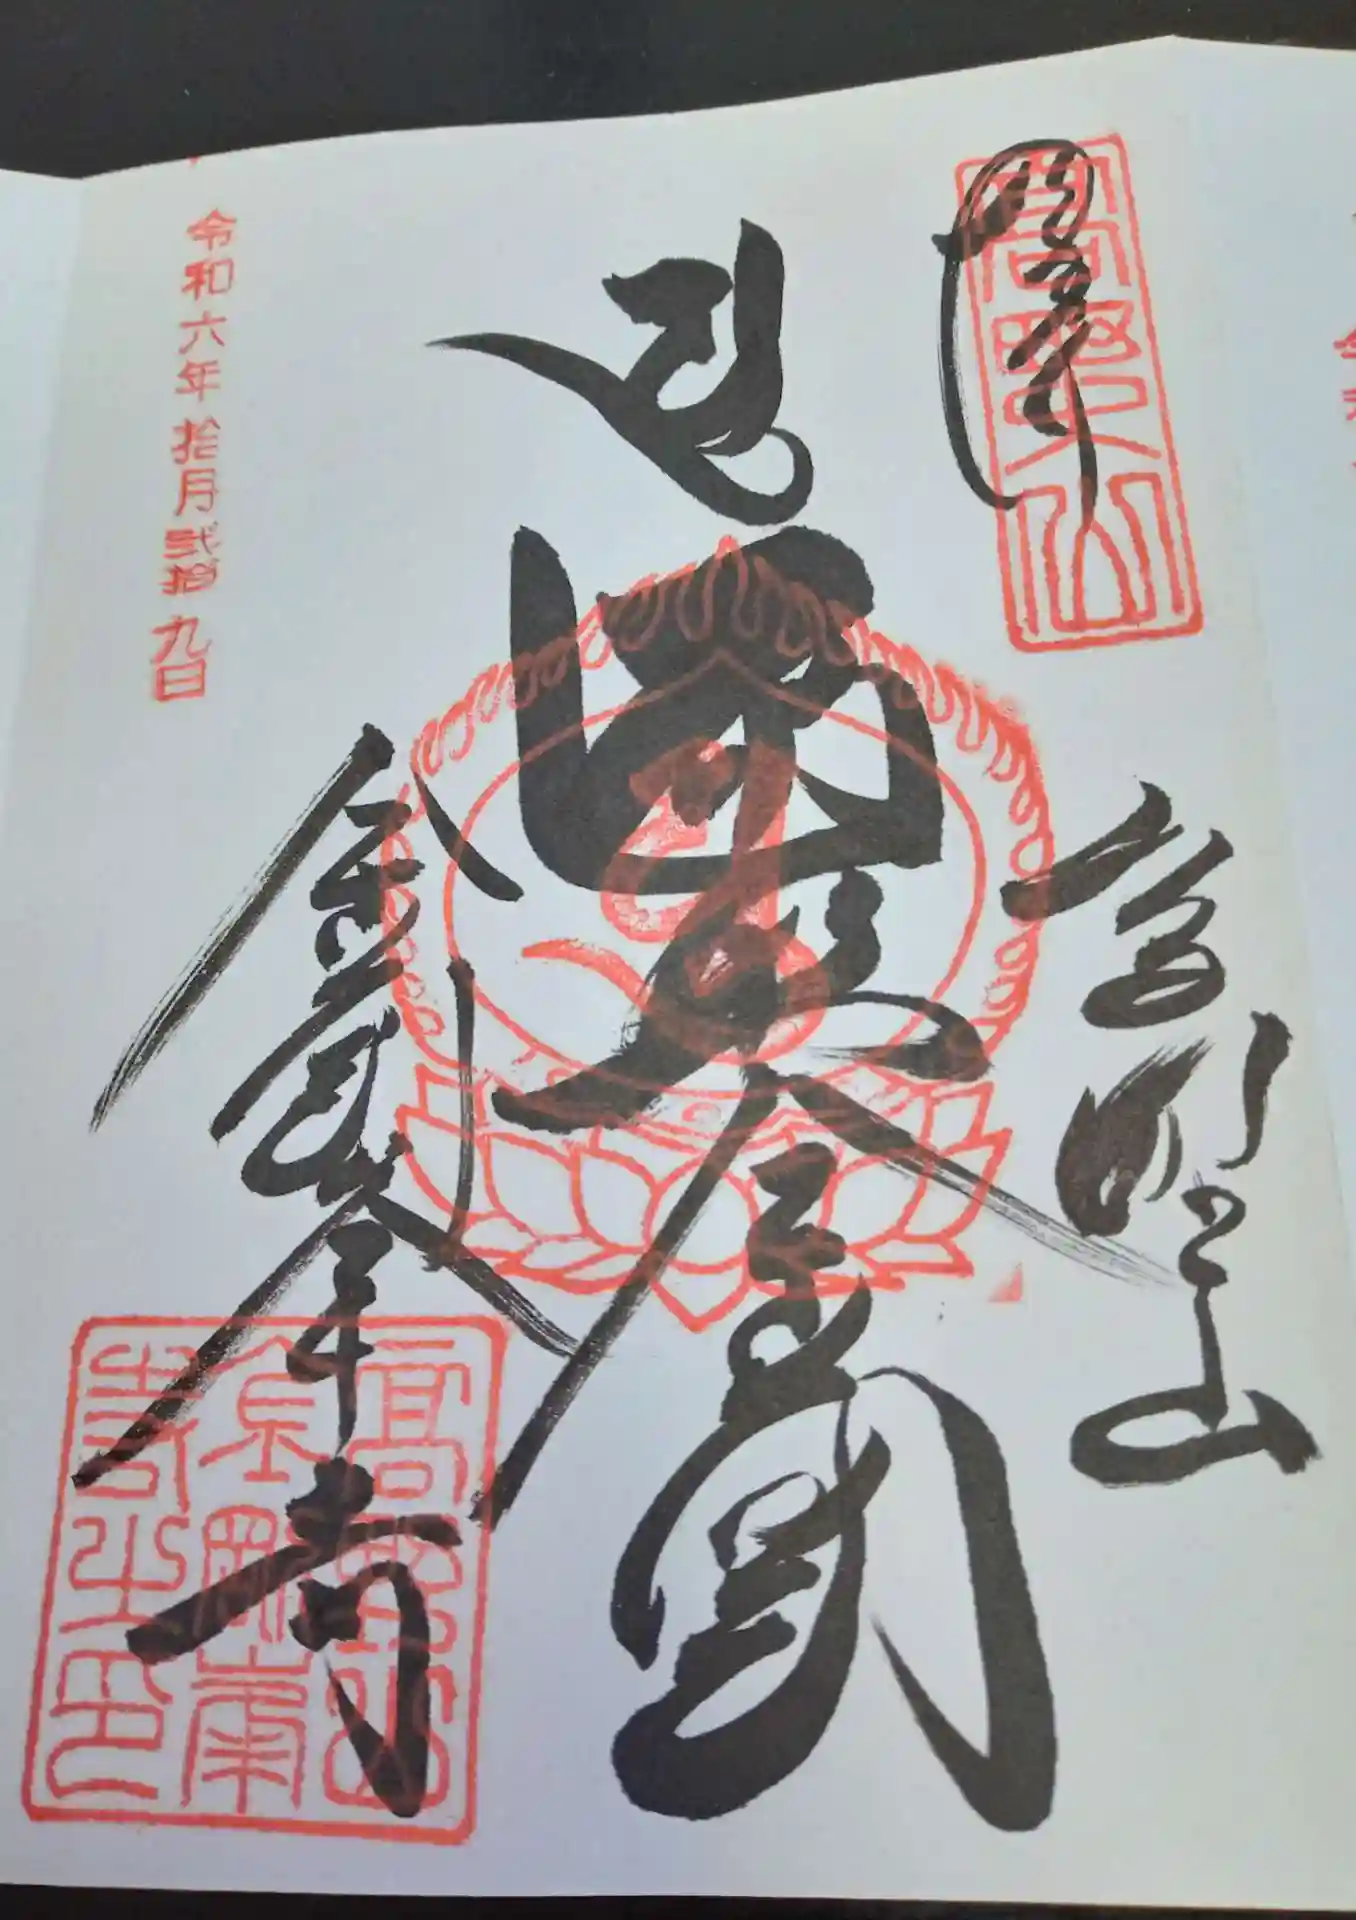 奉拝
高野山
遍照金剛
金剛峯寺
令和六年拾月弐拾九日
高野山
金剛峯
寺之印